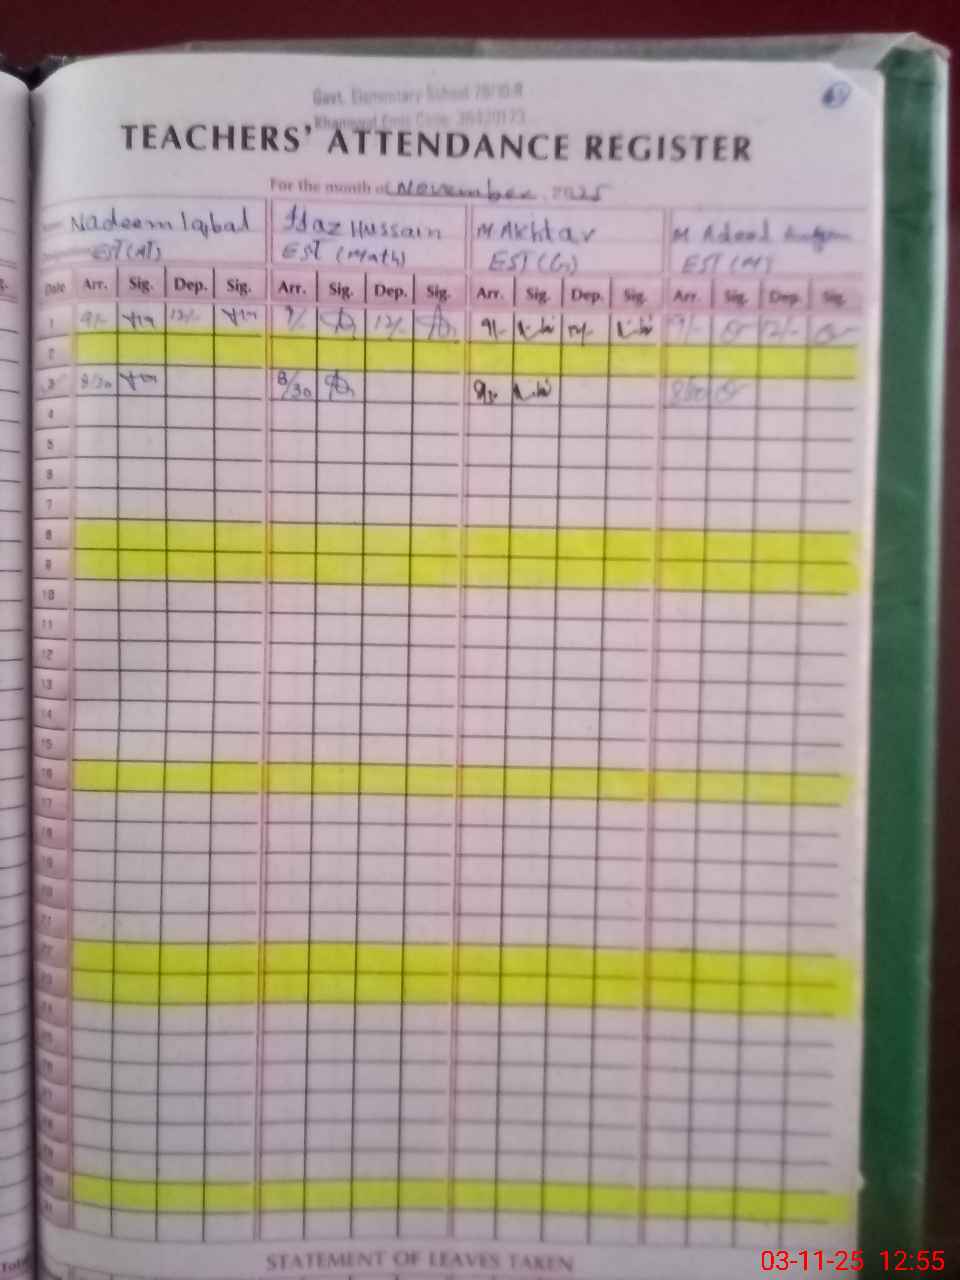 Govt. Elementary School 78/10-R
Khanewal Emis Code: 36420173
TEACHERS' ATTENDANCE REGISTER
For the month of November 2025
Nadeem Iqbal Ijaz Hussain M Akhtar M Adeel
EST (AT) EST (Math) EST (G) EST (M)
Date Arr. Sig. Dep. Sig. Arr. Sig. Dep. Sig. Arr. Sig. Dep. Sig. Arr. Sig. Dep. Sig.
1 9/- 12/- 9/- 12/- 9/- 12/- 9/- 12/-
2
3 8/30 8/30 8/30 8/30
4
5
6
7
8
9
10
11
12
13
14
15
16
17
18
19
20
21
22
23
24
25
26
27
28
29
30
31
STATEMENT OF LEAVES TAKEN
Total
03-11-25 12:55